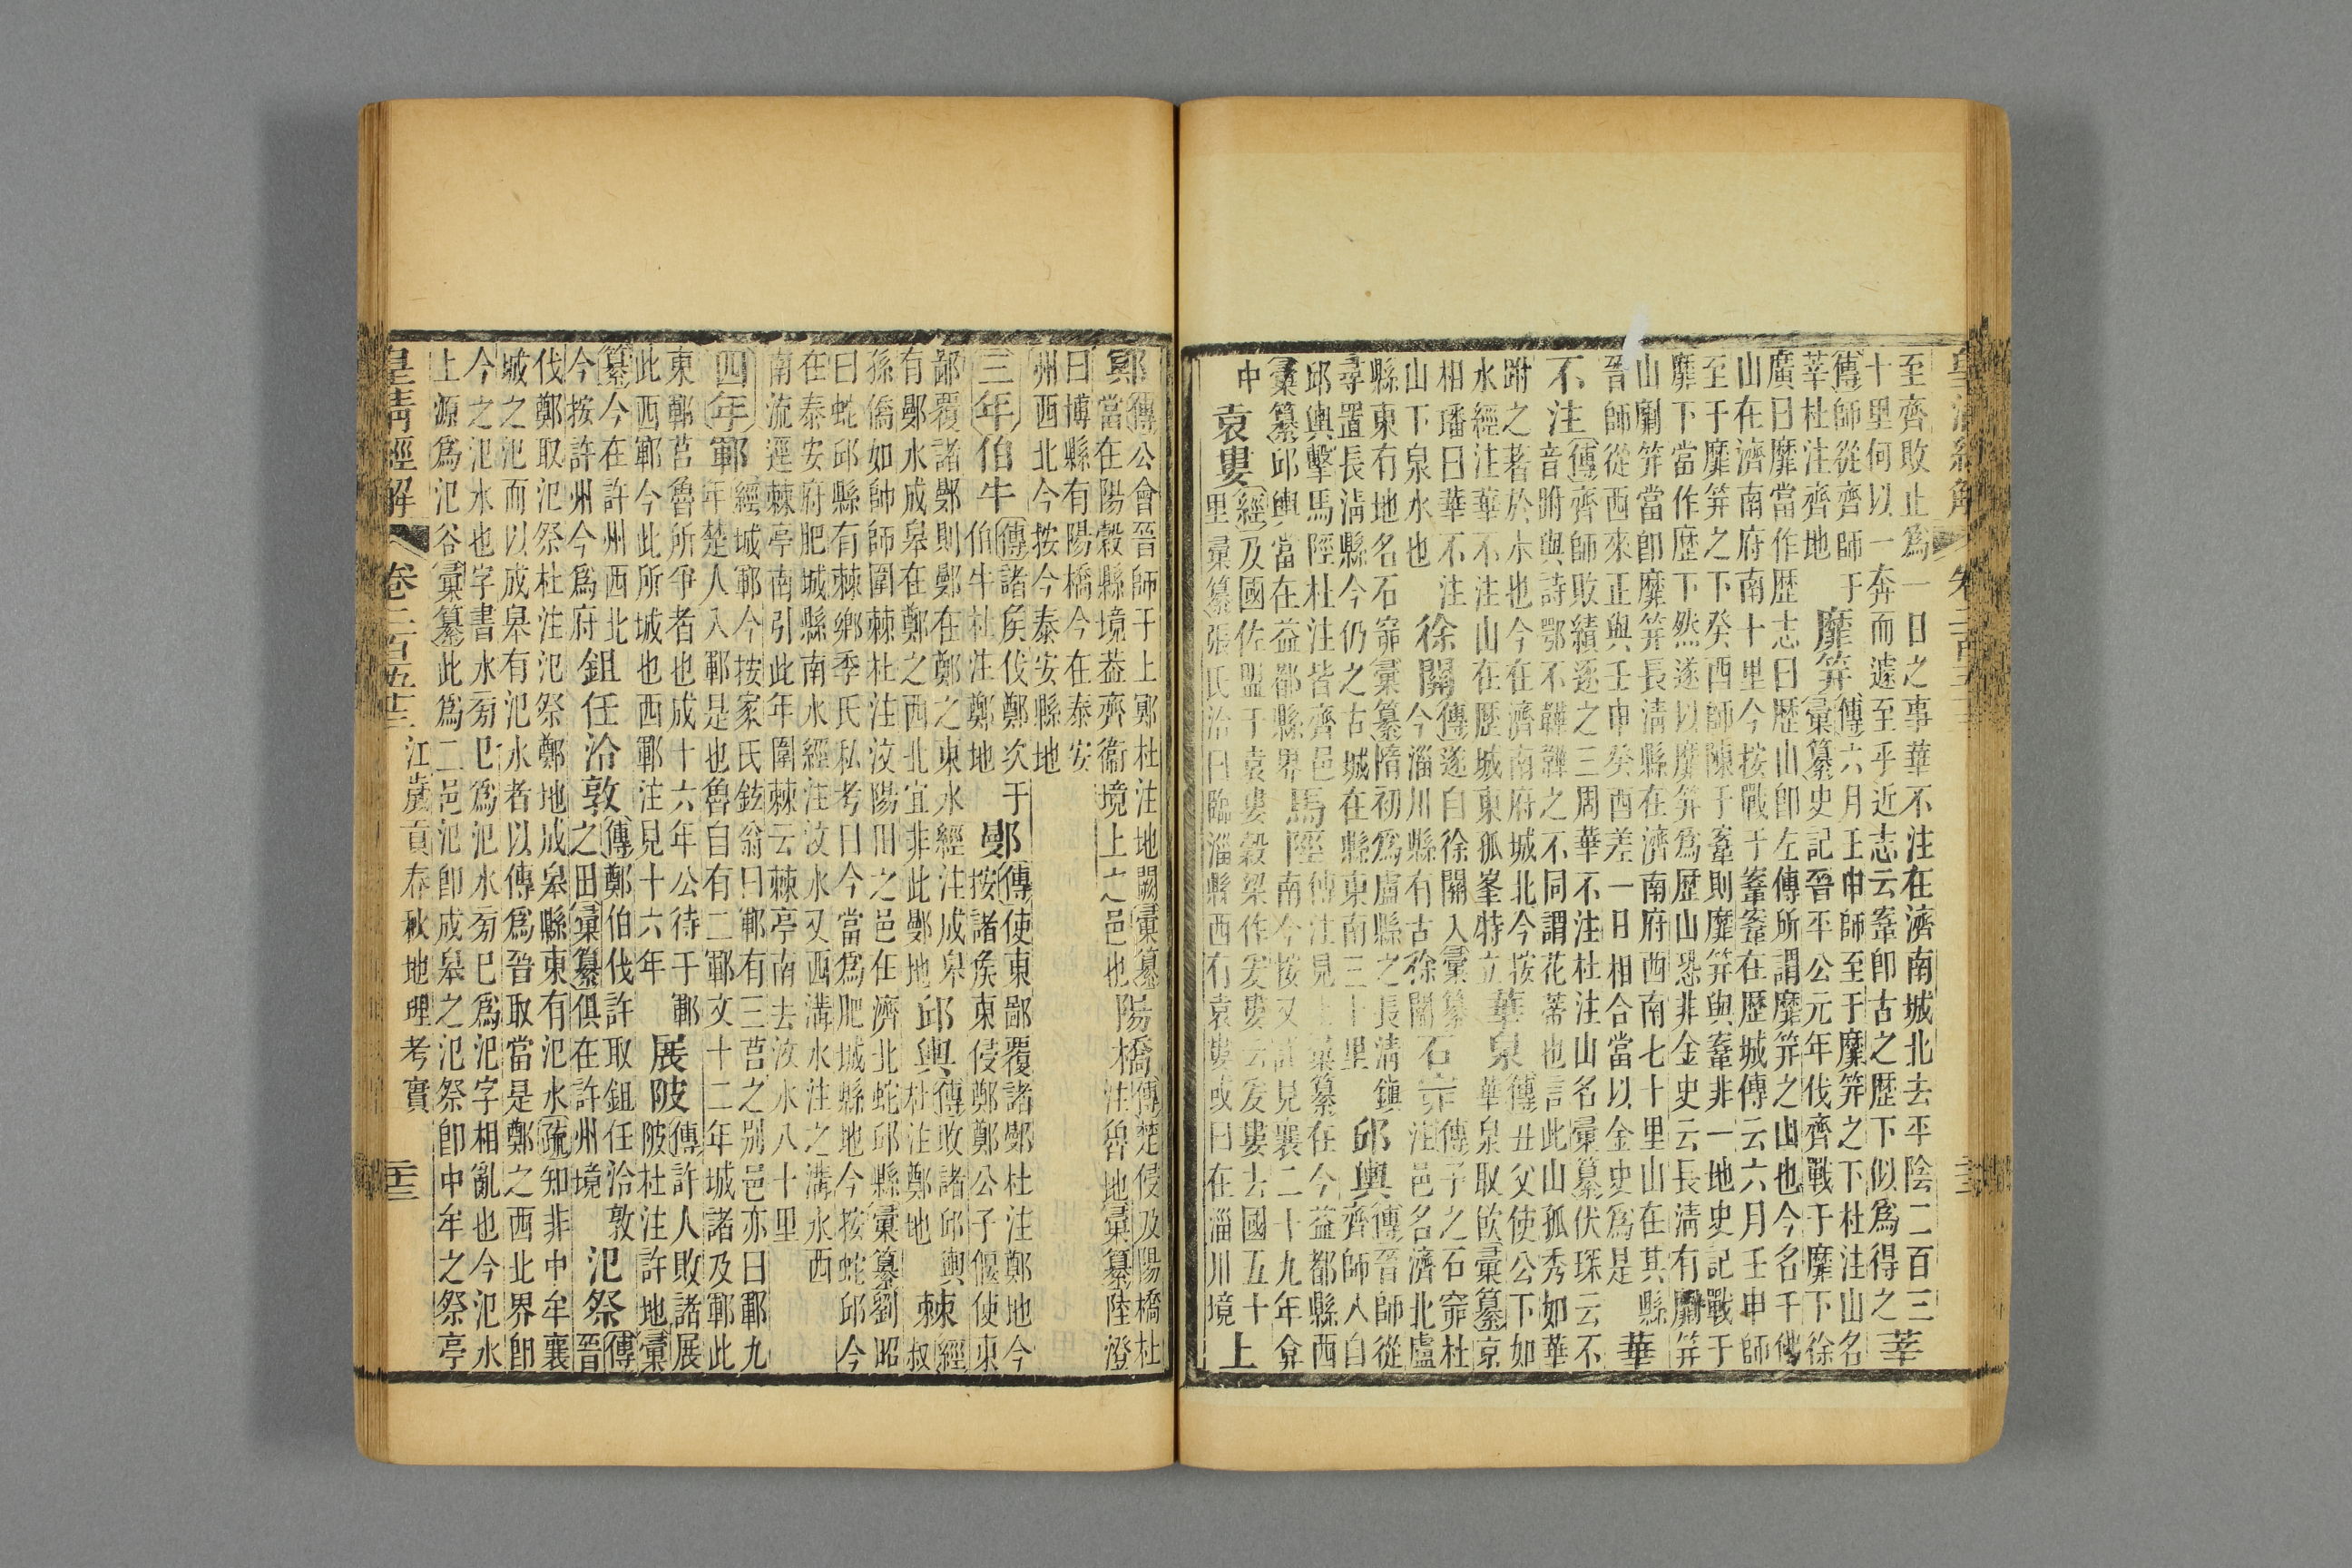 至齊敗止爲一日之事華不注在濟南城北去平陰二百三
十里何以一奔而遽至乎近志云鞌卽古之歷下似爲得之
莘
傳師從齊師于
莘杜注齊地
靡筓
傳六月壬申師至于靡筓之下杜注山名
彙纂史記晉平公元年伐齊戰于靡下徐
廣曰靡當作歷志曰歷山卽左傳所謂靡筓之山也今名千佛
山在濟南府南十里今按戰于鞌鞌在歷城傳云六月壬申師
至于靡筓之下癸酉師陳于鞌則靡筓與鞌非一地史記戰于
靡下當作歷下然遂以靡筓爲歷山恐非金史云長清有廟筓
山廟筓當卽靡筓長清縣在濟南府西南七十里山在其縣
晉師從西來正與壬申癸酉差一日相合當以金史爲是
華
不注
傳齊師敗績逐之三周華不注杜注山名彙纂伏琛云不
音跗與詩鄂不韡韡之不同謂花蒂也言此山孤秀如華
跗之著於水也今在濟南府城北今按
水經注華不注山在歷城東孤峯特立
華泉
傳丑父使公下如
華泉取飲彙纂京
相璠曰華不注
山下泉水也
徐關
傳遂自徐關入彙纂
今淄川縣有古徐關
石窌
傳予之石窌杜
注邑名濟北盧
縣東有地名石窌彙纂隋初爲盧縣之長淸鎮
尋置長淸縣今仍之古城在縣東南三十里
邱輿
傳晉師從
齊師入自
邱輿擊馬陘杜注皆齊邑
彙纂邱輿當在益都縣界
馬陘
傳注見上彙纂在今益都縣西
南今按又詳見襄二十九年弇
中
袁婁
經及國佐盟于袁婁穀梁作爰婁云爰婁去國五十
里彙纂張氏洽曰臨淄縣西有袁婁或曰在淄川境
上
鄍
傳公會晉師于上鄍杜注地闕彙纂
當在陽穀縣境葢齊衞境上之邑也
陽橋
傳楚侵及陽橋杜
注魯地彙纂陸澄
曰博縣有陽橋今在泰安
州西北今按今泰安縣地
三年
伯牛
傳諸侯伐鄭次于
伯牛杜注鄭地
鄤
傳使東鄙覆諸鄤杜注鄭地今
按諸侯東侵鄭鄭公子偃使東
鄙覆諸鄤則鄤在鄭之東水經注成皋
有鄤水成皋在鄭之西北宜非此鄤地
邱輿
傳敗諸邱輿
杜注鄭地
棘
經
叔
孫僑如帥師圍棘杜注汶陽田之邑在濟北蛇邱縣彙纂劉昭
曰蛇邱縣有棘鄉季氏私考曰今當爲肥城縣地今按蛇邱今
在泰安府肥城縣南水經注汶水又西溝水注之溝水西
南流逕棘亭南引此年圍棘云棘亭南去汶水八十里
四年
鄆
經城鄆今按家氏鉉翁曰鄆有三莒之別邑亦曰鄆九
年楚人入鄆是也魯自有二鄆文十二年城諸及鄆此
東鄆莒魯所爭者也成十六年公待于鄆
此西鄆今此所城也西鄆注見十六年
展陂
傳許人敗諸展
陂杜注許地彙
纂今在許州西北
今按許州今爲府
鉏任泠敦
傳鄭伯伐許取鉏任泠敦
之田彙纂俱在許州境
氾祭
傳
晉
伐鄭取氾祭杜注氾祭鄭地成皋縣東有氾水疏知非中牟襄
城之氾而以成皋有氾水者以傳爲晉取當是鄭之西北界卽
今之氾水也字書水旁巳爲氾水旁㔾爲氾字相亂也今氾水
上源爲氾谷彙纂此爲二邑氾卽成皋之氾祭卽中牟之祭亭
皇清經解
卷二百五十三
江歲貢春秋地理考實
二十三